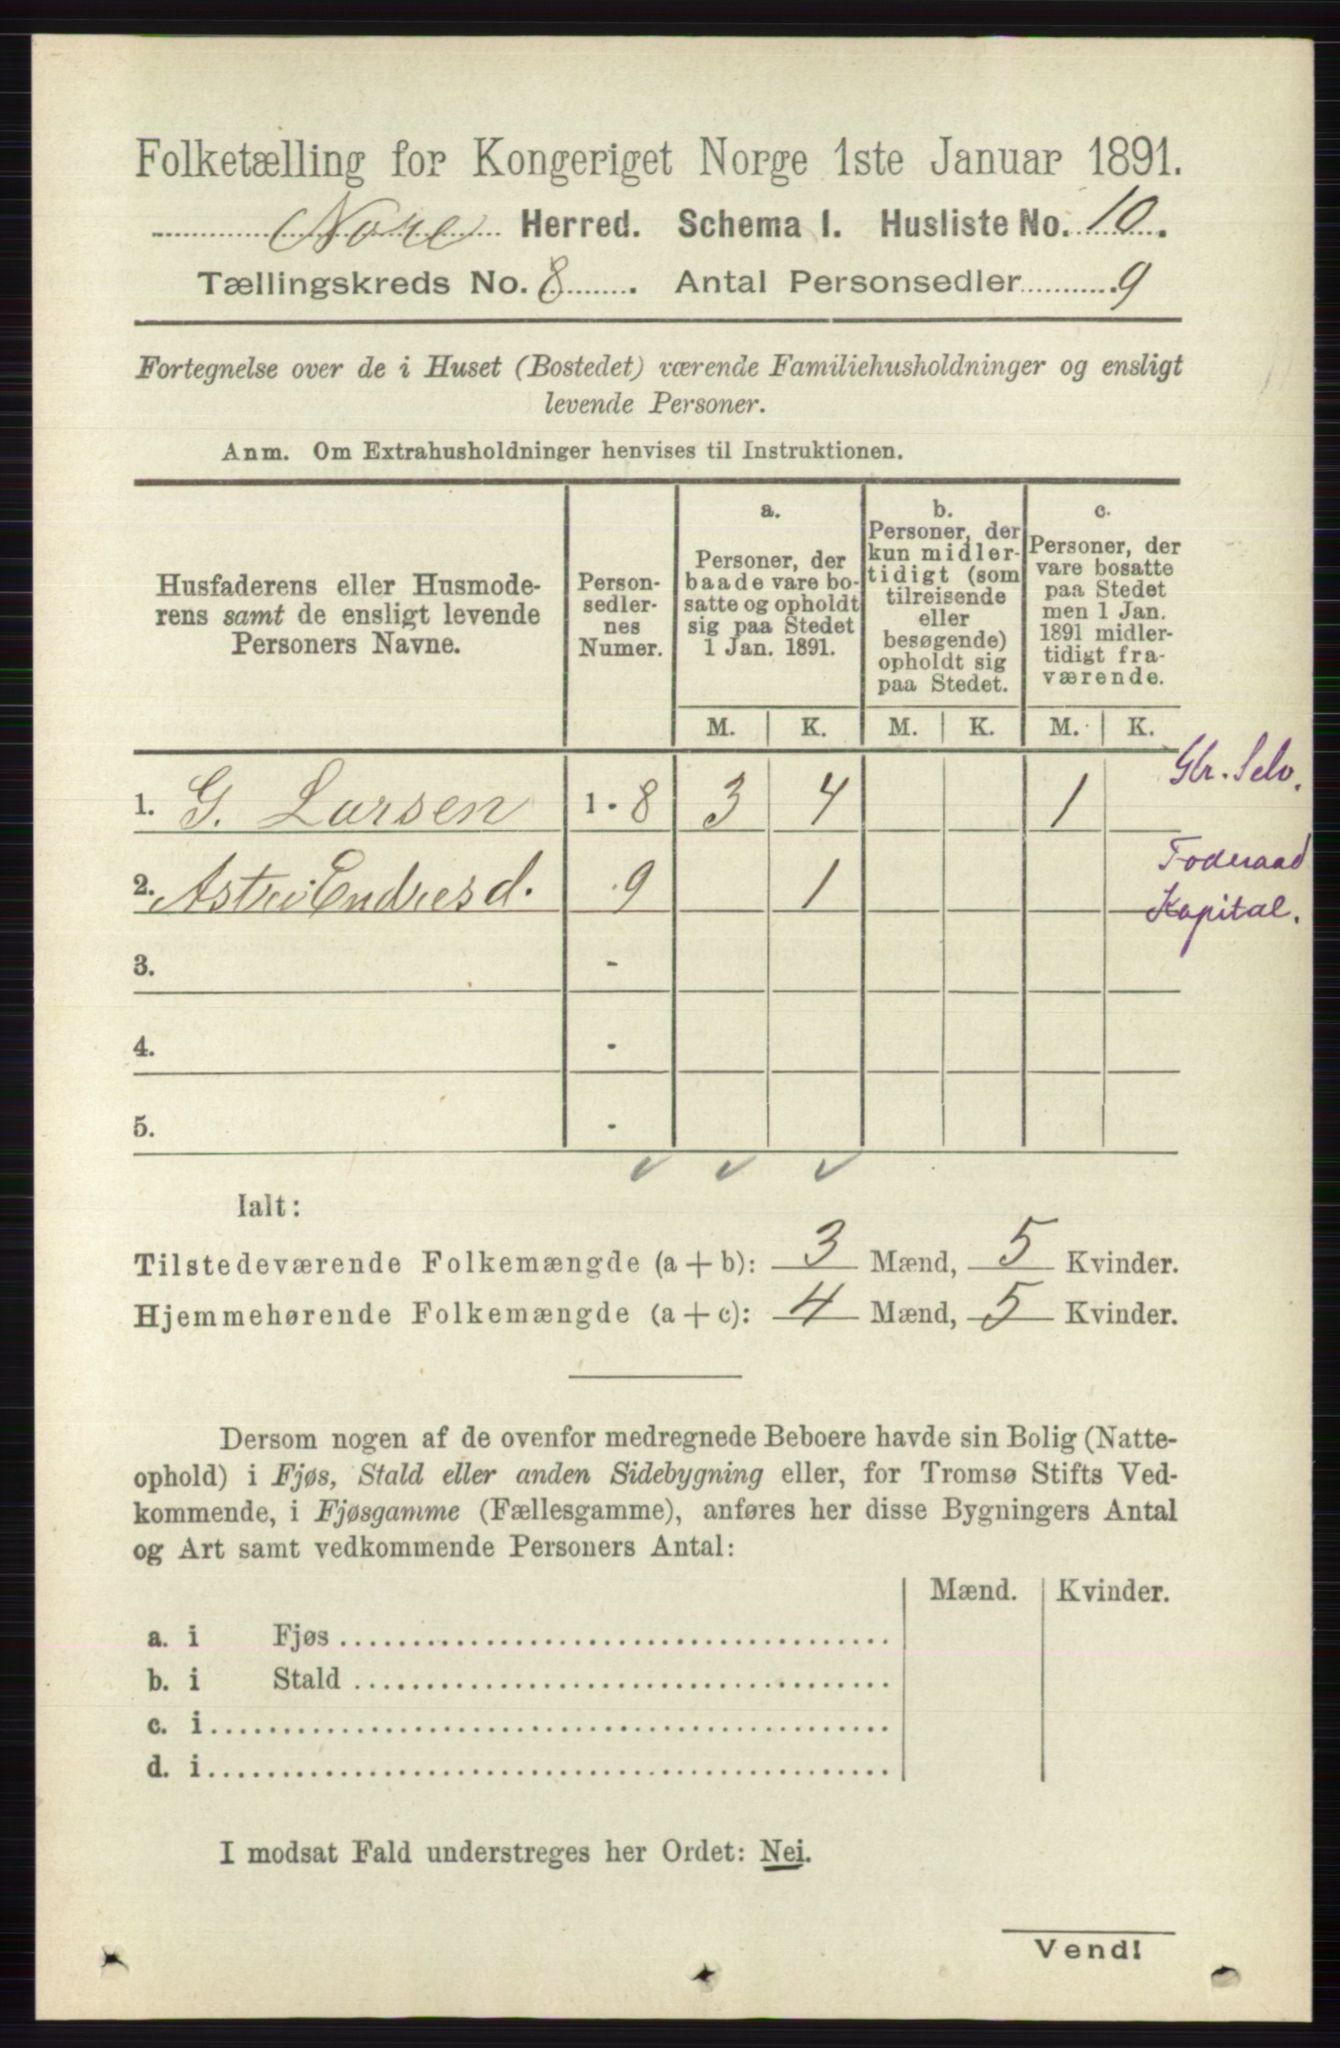 Folketælling for Kongeriget Norge 1ste Januar 1891.
Nore Herred. Schema I. Husliste No. 10.
Tællingskreds No. 8. Antal Personsedler 9
Fortegnelse over de i Huset (Bostedet) værende Familiehusholdninger og ensligt
levende Personer.
Anm. Om Extrahusholdninger henvises til Instruktionen.
Husfaderens eller Husmode-
rens samt de ensligt levende
Personers Navne.
Person-
sedler-
nes
Numer.
a.
Personer, der
baade vare bo-
satte og opholdt
sig paa Stedet
1 Jan. 1891.
b.
Personer, der
kun midler-
tidigt (som
tilreisende
eller
besøgende)
opholdt sig
paa Stedet.
c.
Personer, der
vare bosatte
paa Stedet
men 1 Jan.
1891 midler-
tidigt fra-
værende.
M. K. M. K. M. K.
1. G. Larsen 1 - 8 3 4 1 Gbr. Selv.
2. Astri Endresd. 9 1 Foderaad
Kapital.
3. -
4. -
5. -
Ialt:
Tilstedeværende Folkemængde (a + b): 3 Mænd, 5 Kvinder.
Hjemmehørende Folkemængde (a + c): 4 Mænd, 5 Kvinder.
Dersom nogen af de ovenfor medregnede Beboere havde sin Bolig (Natte-
ophold) i Fjøs, Stald eller anden Sidebygning eller, for Tromsø Stifts Ved-
kommende, i Fjøsgamme (Fællesgamme), anføres her disse Bygningers Antal
og Art samt vedkommende Personers Antal:
Mænd. Kvinder.
a. i Fjøs
b. i Stald
c. i
d. i
I modsat Fald understreges her Ordet: Nei.
Vend!